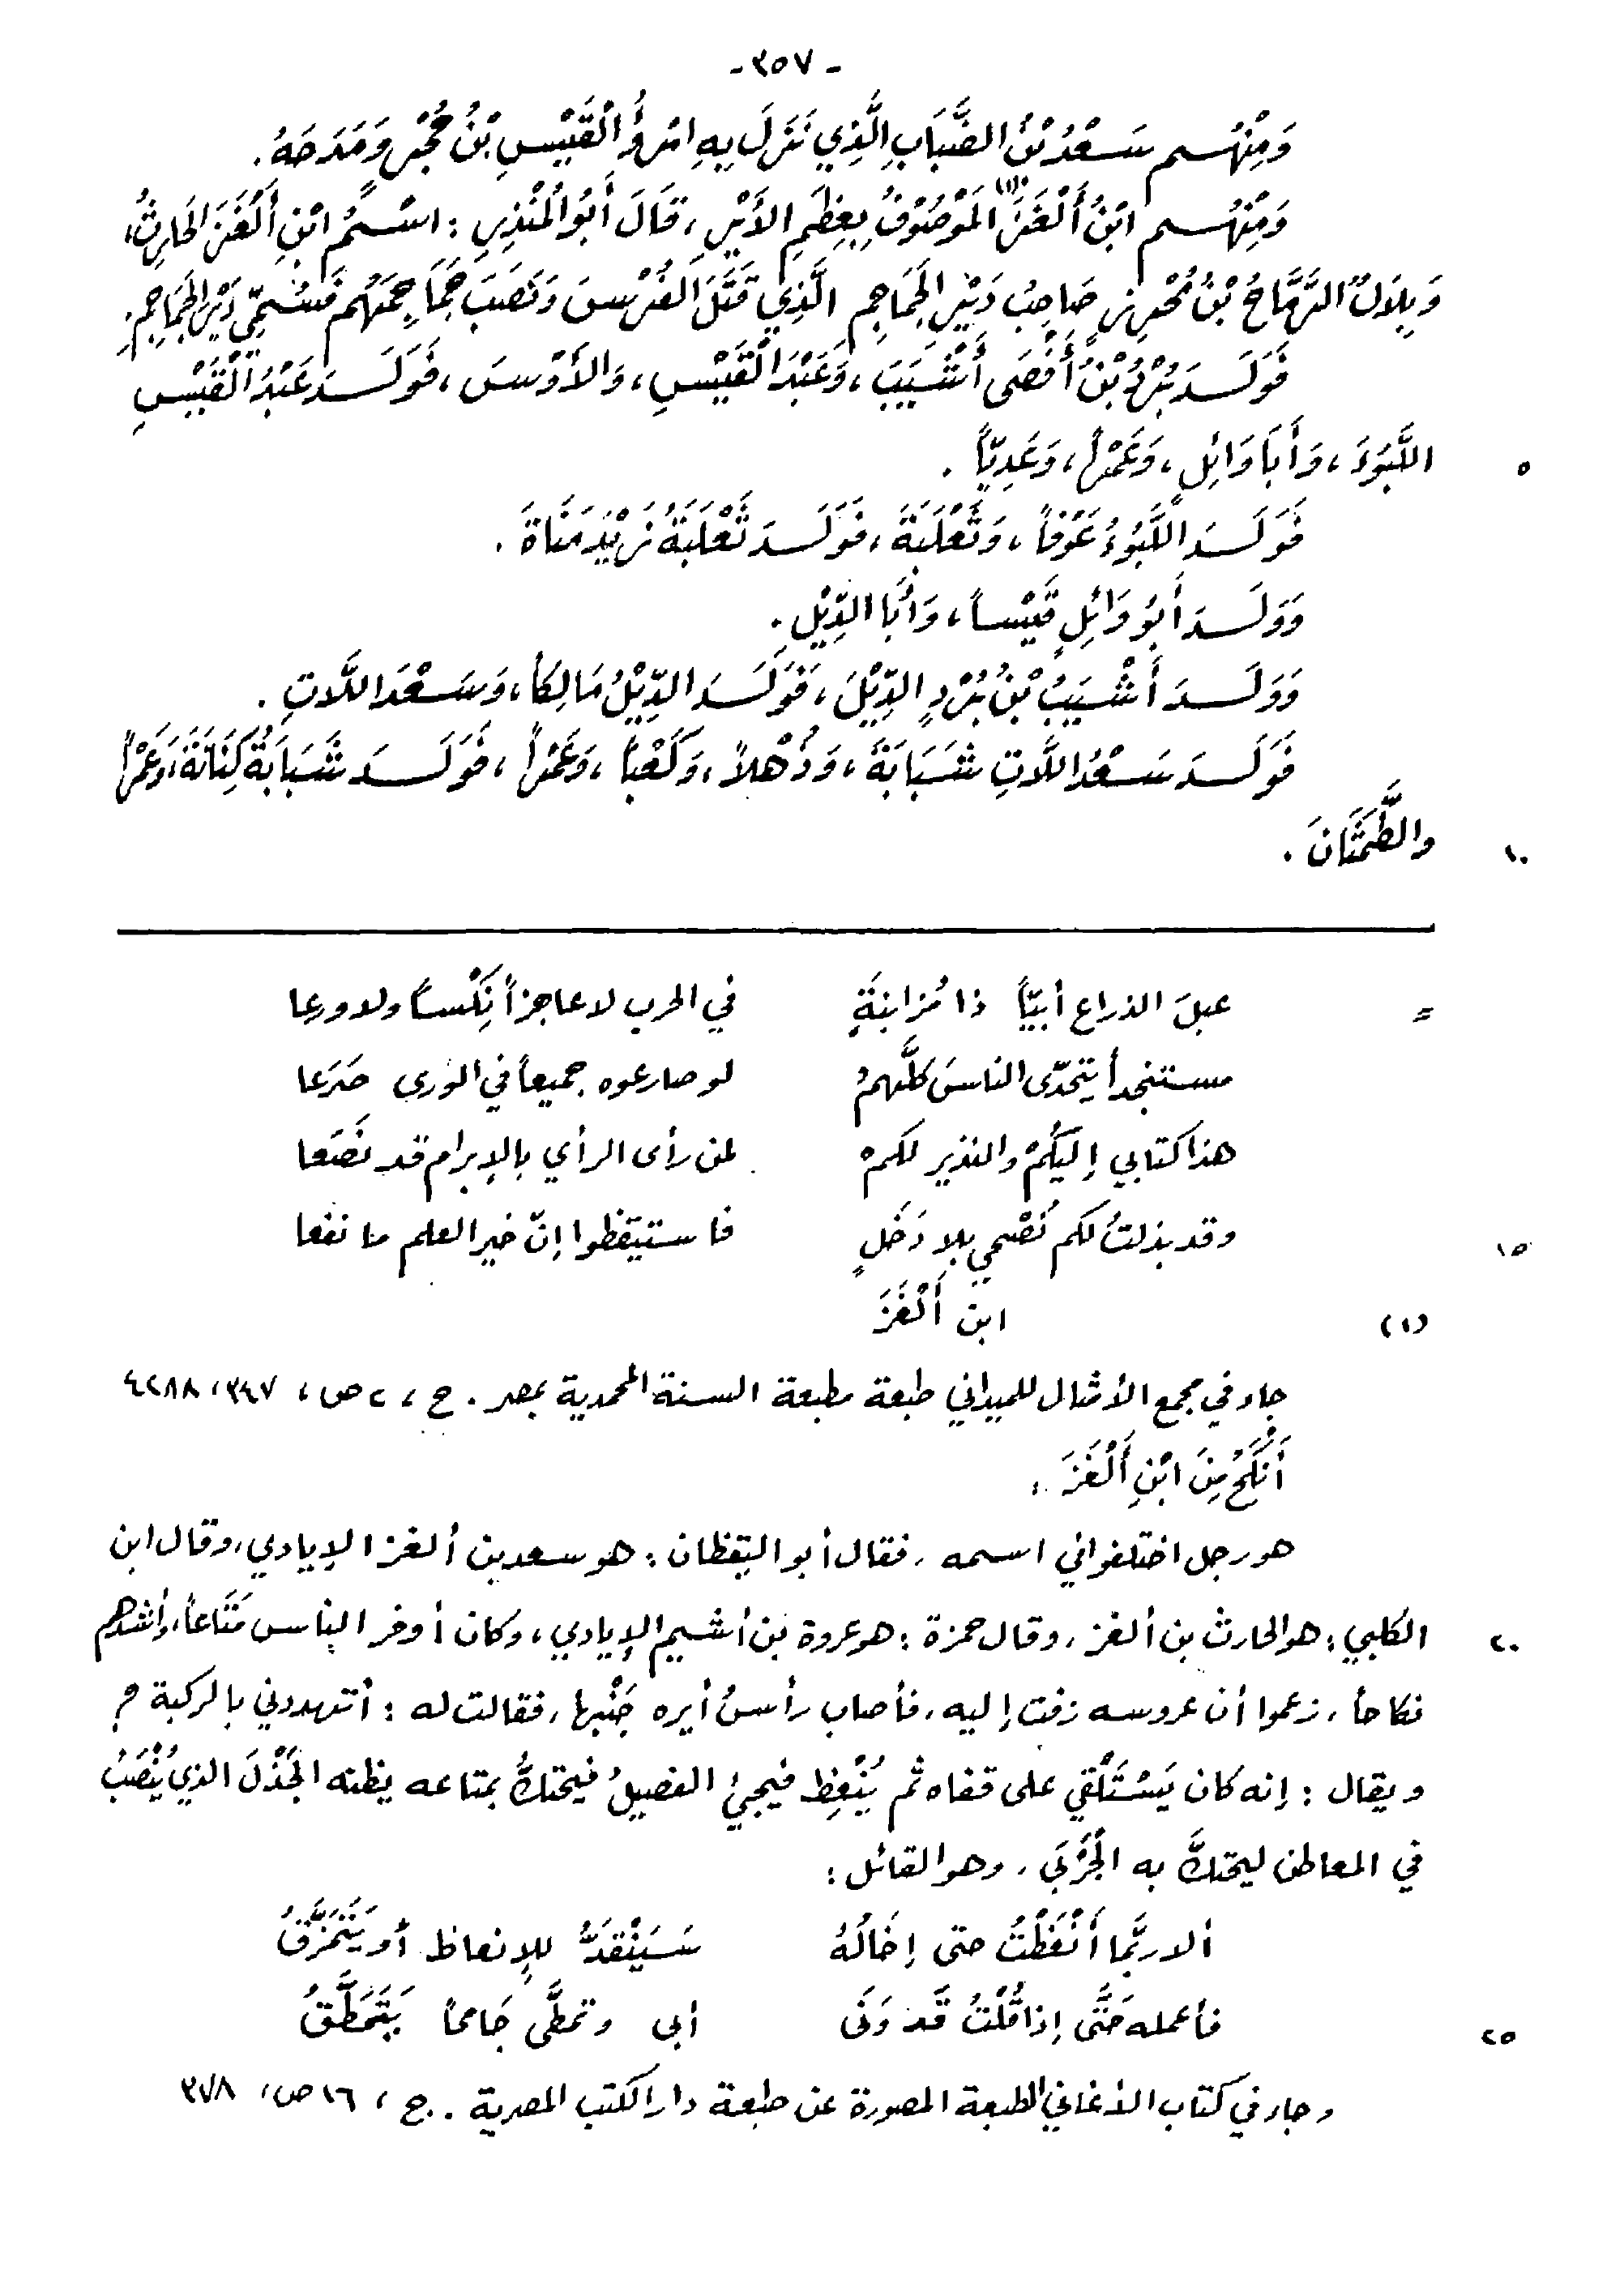 -٣٥٧-
وَمِنْهُم سَعْدُ بْنُ الضَّبَابِ الَّذِي نَزَلَ بِهِ امْرُؤُ الْقَيْسِ بْنُ حُجْرٍ وَمَدَحَهُ.
وَمِنْهُم ابْنُ أَلْغَزَ(١) المَوْصُوْفُ بِعِظَمِ الأَيْرِ، قَالَ أَبُو الْمُنْذِرِ: اسْمُ ابْنِ أَلْغَزَ الحَارِثُ،
وَبِلَالٌ الرَّمَّاحُ بْنُ مُحْرِزٍ صَاحِبُ دَيْرِ الجَمَاجِمِ الَّذِي قَتَلَ الفُرْسَ وَنَصَبَ جَمَاجِمَهُم فَسُمِّيَ دَيْرَ الجَمَاجِمِ.
فَوَلَدَ بُرْدُ بْنُ أَفْصَى أَشْيَبَ، وَعَبْدَ الْقَيْسِ، وَالأَوْسَ، فَوَلَدَ عَبْدُ الْقَيْسِ
٥ اللَّبُوءَ، وَأَبَا وَائِلٍ، وَعَمْراً، وَعَدِيّاً.
فَوَلَدَ اللَّبُوءُ عَوْفاً، وَثَعْلَبَةَ، فَوَلَدَ ثَعْلَبَةُ زَيْدَ مَنَاةَ.
وَوَلَدَ أَبُو وَائِلٍ قَيْساً، وَأَبَا الدِّيْلِ.
وَوَلَدَ أَشْيَبُ بْنُ بُرْدٍ الدِّيْلَ، فَوَلَدَ الدِّيْلُ مَالِكاً، وَسَعْدَ اللَّاتِ.
فَوَلَدَ سَعْدُ اللَّاتِ شَبَابَةَ، وَذُهْلاً، وَكَعْباً، وَعَمْراً، فَوَلَدَ شَبَابَةُ كِنَانَةَ، وَعَمْراً
١٠ والطَّمَثَانَ.
= عبلَ الذراع أبيّاً ذا مُزابنةٍ في الحرب لا عاجزاً نِكْساً ولا ورعا
مستنجداً يتحدّى الناسَ كلَّهمُ لو صارعوه جميعاً في الورى صَرَعا
هذا كتابي إليكُمْ والنذير لكمْ لمن رأى الرأي بالإبرام قد نَصَعا
١٥ وقد بذلتُ لكم نُصْحي بلا دَخَلٍ فاستيقظوا إنّ خير العلم ما نفعا
(١) ابن أَلْغَزَ
جاء في مجمع الأمثال للميداني طبعة مطبعة السنة المحمدية بمصر. ج، ٢ ص، ٣٤٧، ٤٢٨٨
أَنْكَحُ مِنَ ابْنِ أَلْغَزَ:
هو رجل اختلفوا في اسمه، فقال أبو اليقظان: هو سعد بن ألغز الإيادي، وقال ابن
٢٠ الكلبي: هو الحارث بن ألغز، وقال حمزة: هو عروة بن أشيم الإيادي، وكان أوفر الناس مَتَاعاً، وأشدهم
نكاحاً، زعموا أن عروسه زفت إليه، فأصاب رأسُ أيره جَنْبها، فقالت له: أتهددني بالركبة؟
ويقال: إنه كان يَسْتَلْقي على قفاه ثم يُنْعِظ فيجيئ الفصيلُ فيحتكُّ بمتاعه يظنه الجِذْلَ الذي يُنْصَبُ
في المعاطن ليحتكَّ به الجَرْبَى، وهو القائل:
ألا ربَّما أَنْعَظْتُ حتى إخَالُهُ سَيَنْقَدُّ للإنعاظ أو يَتَمَزَّقُ
٢٥ فأعمله حَتَّى إذا قُلْتُ قَد وَنَى أبى وتمطَّى جَامحاً يَتَمَطَّقُ
وجاء في كتاب الأغاني الطبعة المصورة عن طبعة دار الكتب المصرية. ج، ١٦ ص، ٣٧٨